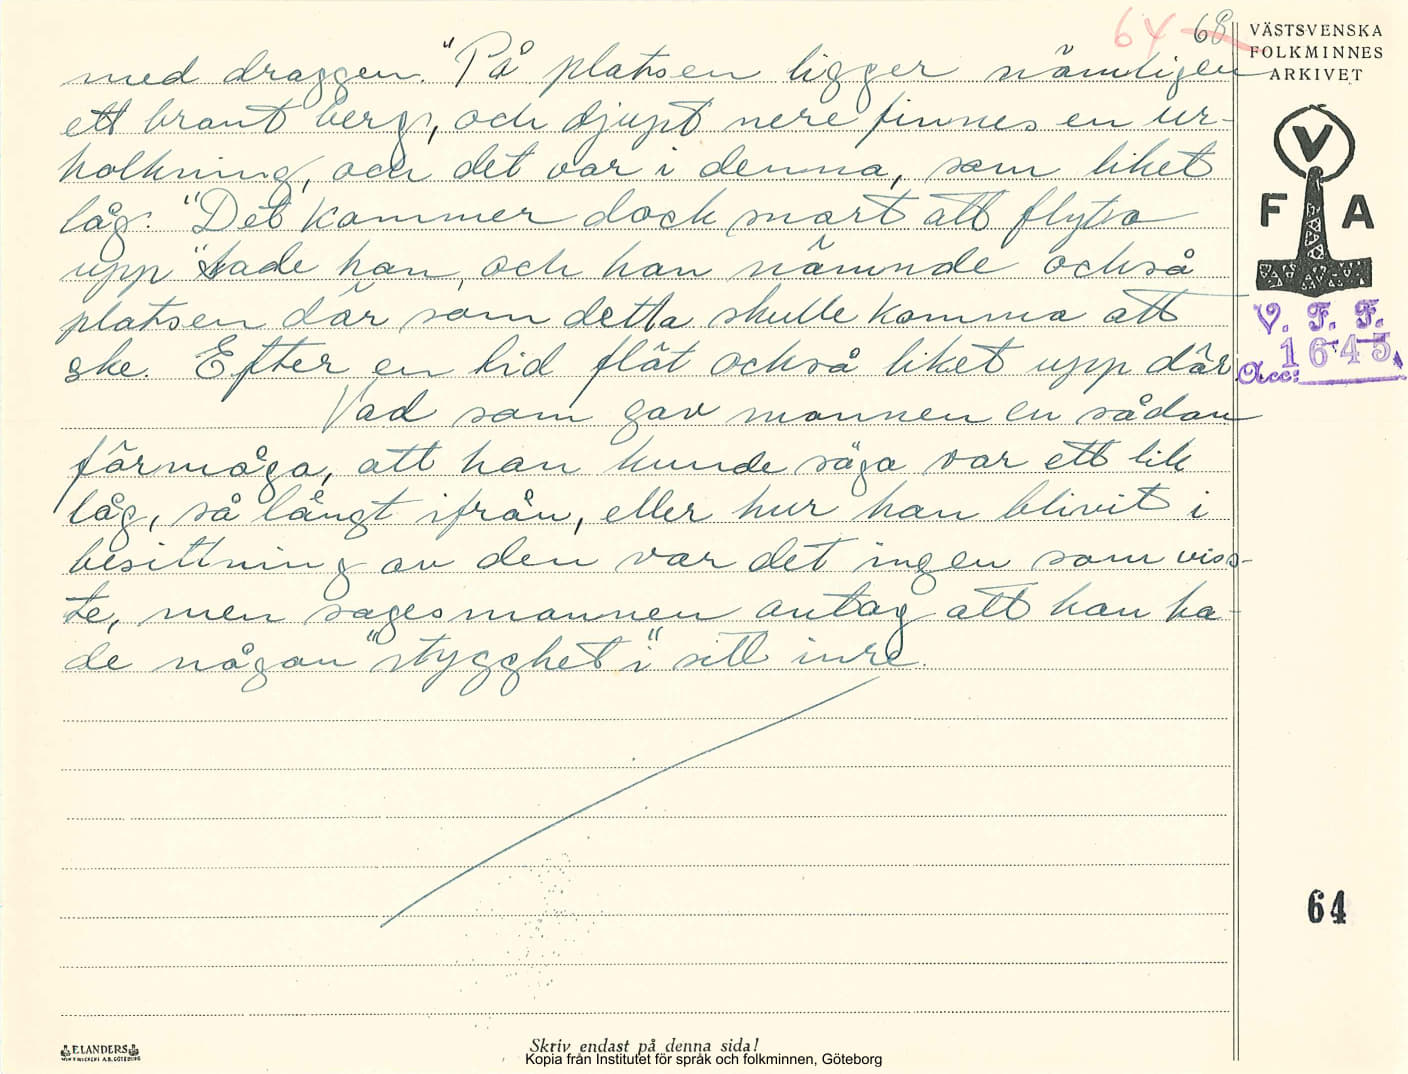 64 68
VÄSTSVENSKA
FOLKMINNES
ARKIVET
V
F A
V. F. F.
Acc: 1645
med draggen. "På platsen ligger nämligen
ett brant berg, och djupt nere finnes en ur-
holkning, och det var i denna, som liket
låg." "Det kommer dock snart att flyta
upp" sade han, och han nämnde också
platsen där som detta skulle komma att
ske. Efter en tid flöt också liket upp där.
Vad som gav mannen en sådan
förmåga, att han kunde säga var ett lik
låg, så långt ifrån, eller hur han blivit i
besittning av den var det ingen som viss-
te, men sagesmannen antog att han ha-
de någon "stygghet i" sitt inre.
64
ELANDERS
Skriv endast på denna sida!
Kopia från Institutet för språk och folkminnen, Göteborg